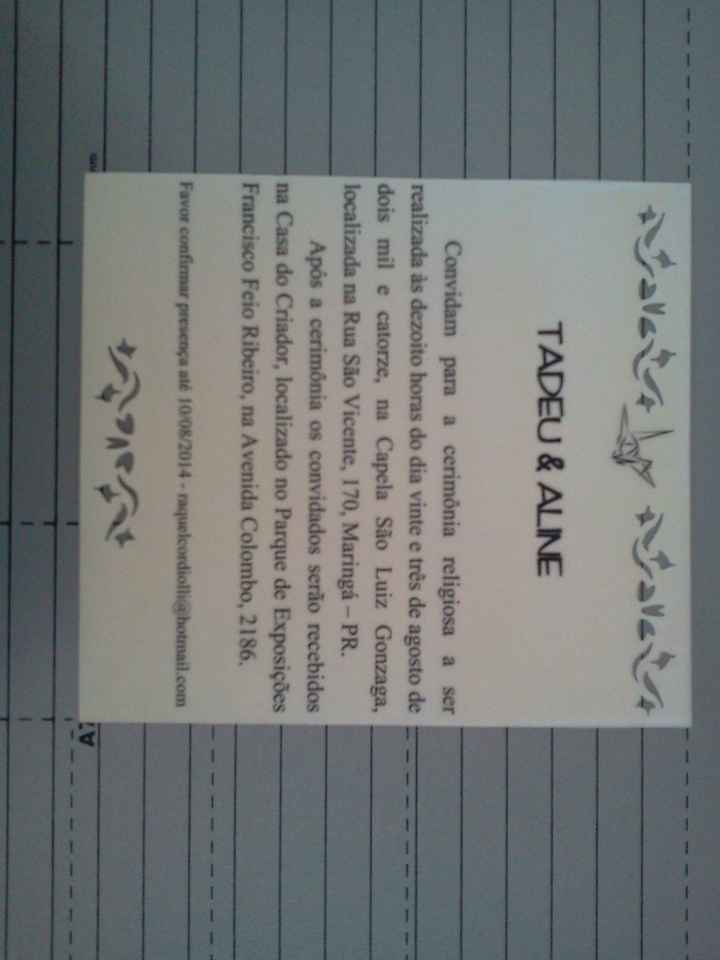 TADEU & ALINE
Convidam para a cerimônia religiosa a ser
realizada às dezoito horas do dia vinte e três de agosto de
dois mil e catorze, na Capela São Luiz Gonzaga,
localizada na Rua São Vicente, 170, Maringá – PR.
Após a cerimônia os convidados serão recebidos
na Casa do Criador, localizado no Parque de Exposições
Francisco Feio Ribeiro, na Avenida Colombo, 2186.
Favor confirmar presença até 10/08/2014 - raquelcordiolli@hotmail.com